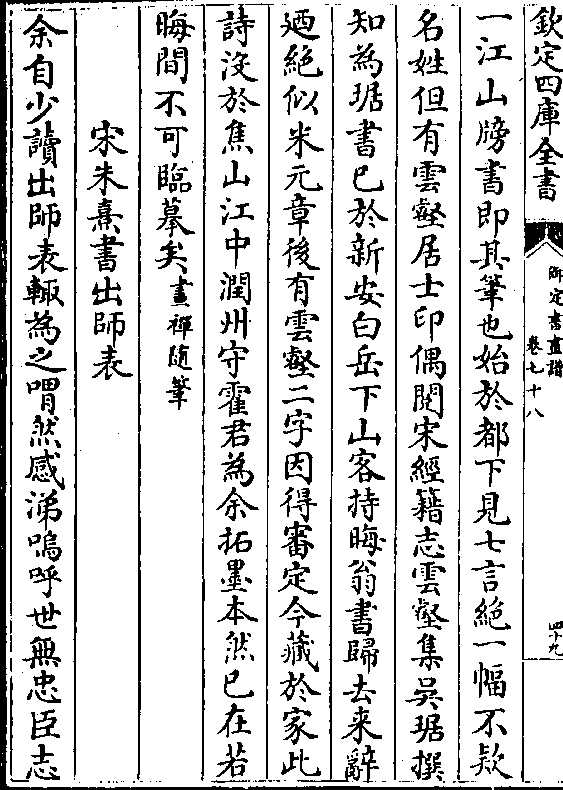 欽定四庫全書
御定書畫譜
卷七十八
四十九
一江山牓書即其筆也始於都下見七言絶一幅不款
名姓但有雲壑居士印偶閲宋經籍志雲壑集吳琚撰
知為琚書已於新安白岳下山客持晦翁書歸去来辭
廼絶似米元章後有雲壑二字因得審定今藏於家此
詩没於焦山江中潤州守霍君為余拓墨本然已在若
晦間不可臨摹矣畫禪随筆
宋朱熹書出師表
余自少讀出師表輙為之喟然感涕嗚呼世無忠臣志